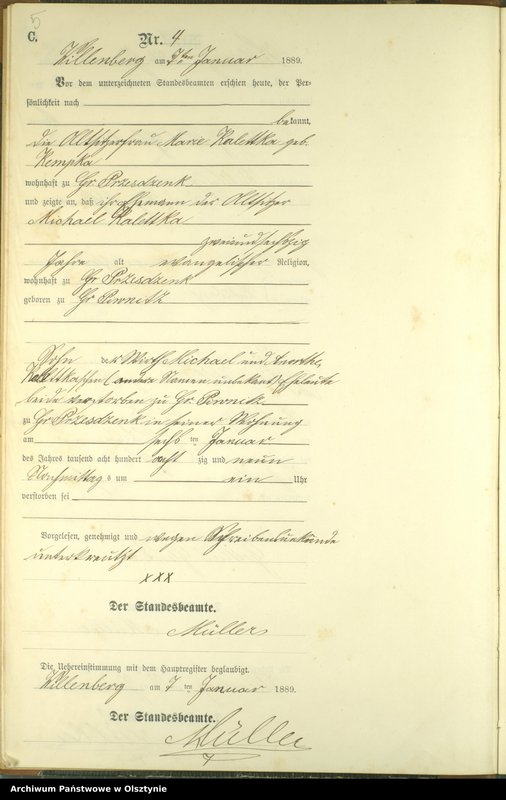 5
C.
Nr. 4
Willenberg am 7ten Januar 1889.
Vor dem unterzeichneten Standesbeamten erschien heute, der Per-
sönlichkeit nach
bekannt,
die Altsitzerfrau Marie Kalettka geb.
Kempka
wohnhaft zu Gr Przesdzenk
und zeigte an, daß ihr Ehemann der Altsitzer
Michael Kalettka
zweiundsechszig
Jahre alt evangelischer Religion,
wohnhaft zu Gr Przesdzenk
geboren zu Gr Piwnitz
Sohn der Wirth Michael und Dorothe,
Kalettkaschen (andere Namen unbekannt) Eheleute
beide verstorben zu Gr. Piwnitz
zu Gr Przesdzenk in seiner Wohnung
am sechs ten Januar
des Jahres tausend acht hundert acht zig und neun
Nachmittag s um ein Uhr
verstorben sei
Vorgelesen, genehmigt und wegen Schreibensunkunde
unterkreutzt
xxx
Der Standesbeamte.
Müller
Die Uebereinstimmung mit dem Hauptregister beglaubigt.
Willenberg am 7 ten Januar 1889.
Der Standesbeamte.
Müller
Archiwum Państwowe w Olsztynie